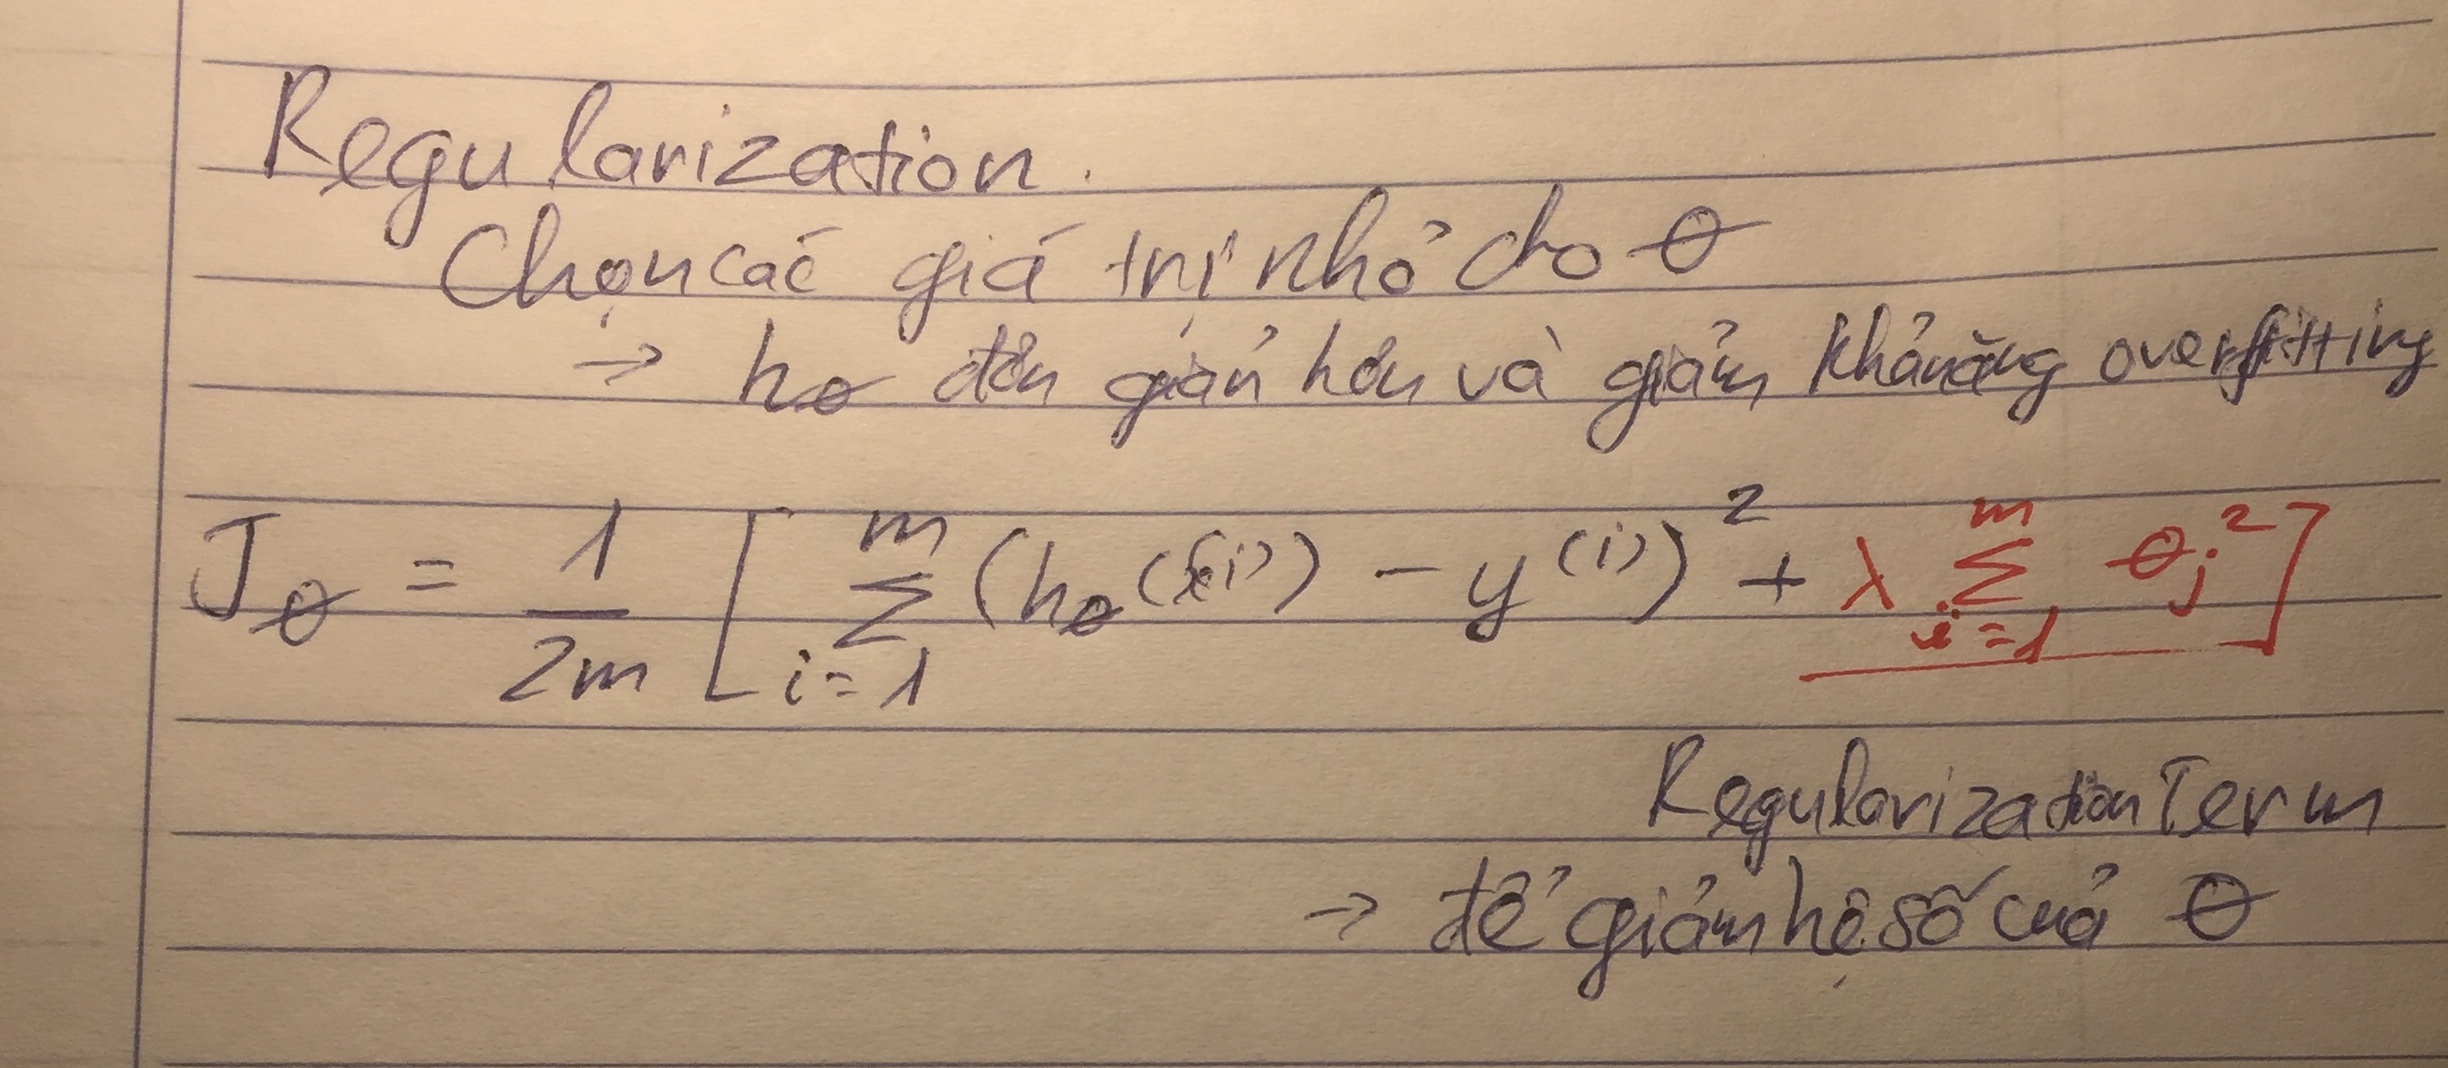 Regularization.
Chọn các giá trị nhỏ cho θ
→ hθ đơn giản hơn và giảm khả năng overfitting
Jθ = 1/2m [ m∑i=1 (hθ(x(i)) - y(i))² + λ m∑i=1 θj² ]
Regularization Term
→ để giảm hệ số của θ